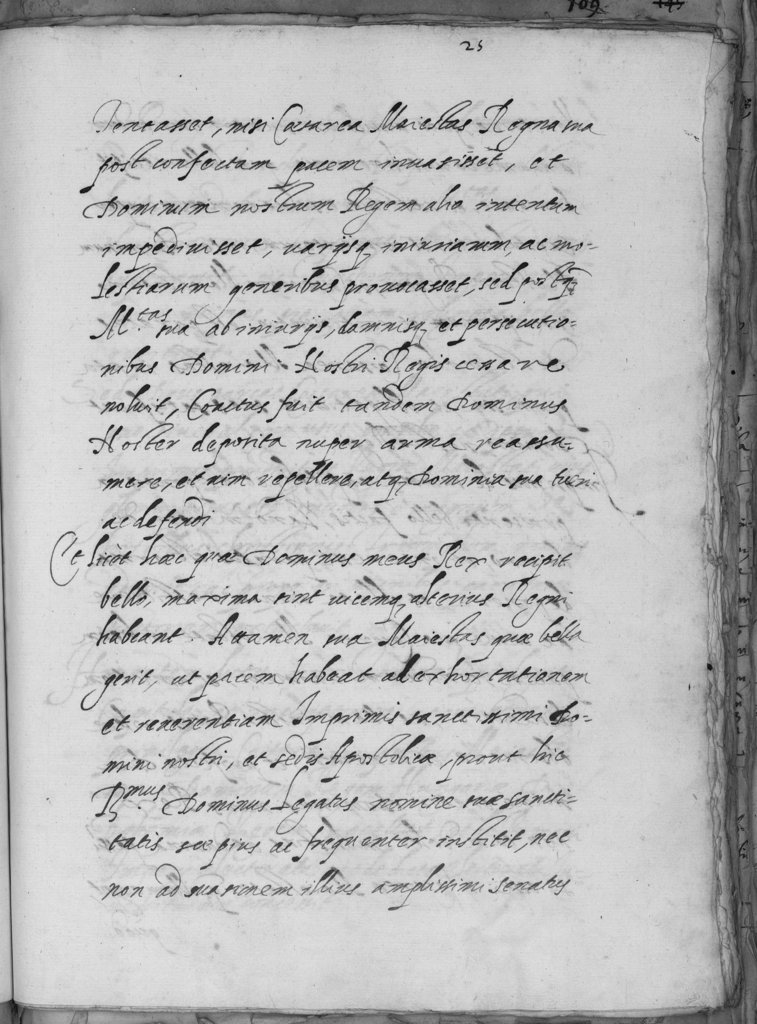 109
25
tentasset, nisi Cæsarea Maiestas Regna sua
post confectam pacem inuasisset, et
Dominum nostrum Regem alia intentum
impediuisset, uarijsq iniuriarum, ac mo-
lestiarum generibus prouocasset, sed postq
M.tas sua ab iniurijs, damnisq et persecutio-
nibus Domini Nostri Regis cessare
noluit, Coactus fuit tandem Dominus
Noster deposita nuper arma reassu-
mere, et uim repellere, atq Dominia sua tueri
ac defendi
Et licèt hæc quæ Dominus meus Rex recipit
bello, maxima sint uicemq alterius Regni
habeant. Attamen sua Maiestas quæ bella
gerit, ut pacem habeat ad exhortationem
et reuerentiam Imprimis sanctissimi Do-
mini nostri, et sedis Apostolicæ, prout hic
R.mus Dominus Legatus nomine suæ sancti-
tatis sæpius ac frequenter institit, nec
non ad suasionem illius amplissimi senatus